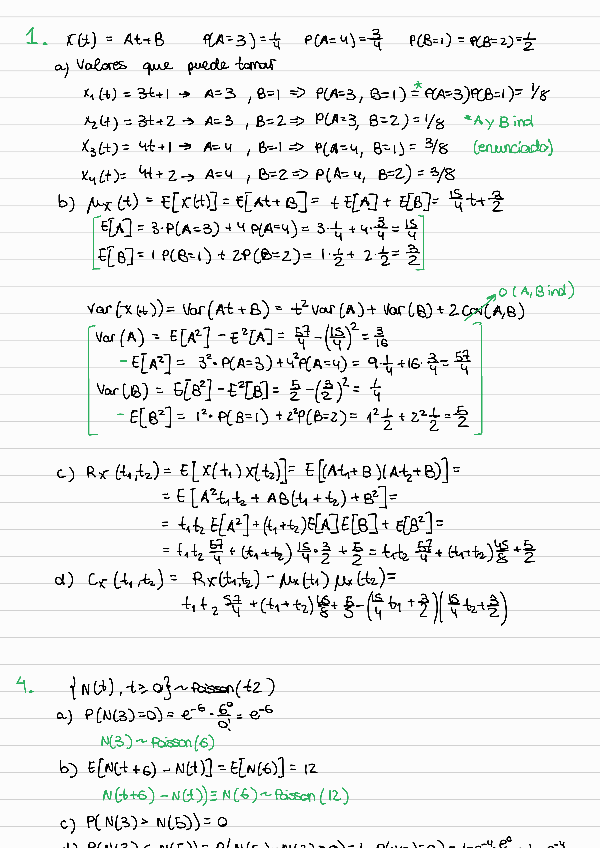 1. X(t) = At+B P(A=3)=1/4 P(A=4)=3/4 P(B=1)=P(B=2)=1/2
a) Valores que puede tomar
X₁(t) = 3t+1 → A=3, B=1 ⇒ P(A=3, B=1) =* P(A=3)P(B=1)= 1/8
X₂(t) = 3t+2 → A=3, B=2 ⇒ P(A=3, B=2) = 1/8 *A y B ind
X₃(t) = 4t+1 → A=4, B=1 ⇒ P(A=4, B=1) = 3/8 (enunciado)
X₄(t) = 4t+2 → A=4, B=2 ⇒ P(A=4, B=2) = 3/8
b) μx(t) = E[X(t)] = E[At+B] = tE[A] + E[B] = 15/4 t + 3/2
E[A] = 3·P(A=3) + 4P(A=4) = 3·1/4 + 4·3/4 = 15/4
E[B] = 1P(B=1) + 2P(B=2) = 1·1/2 + 2·1/2 = 3/2
0 (A, B ind)
Var(X(t)) = Var(At+B) = t²Var(A) + Var(B) + 2Cov(A,B)
Var(A) = E[A²] - E²[A] = 57/4 - (15/4)² = 3/16
- E[A²] = 3²·P(A=3) + 4²P(A=4) = 9·1/4 + 16·3/4 = 57/4
Var(B) = E[B²] - E²[B] = 5/2 - (3/2)² = 1/4
- E[B²] = 1²·P(B=1) + 2²P(B=2) = 1²·1/2 + 2²·1/2 = 5/2
c) Rx(t₁,t₂) = E[X(t₁)X(t₂)] = E[(At₁+B)(At₂+B)] =
= E[A²t₁t₂ + AB(t₁+t₂) + B²] =
= t₁t₂E[A²] + (t₁+t₂)E[A]E[B] + E[B²] =
= t₁t₂ 57/4 + (t₁+t₂) 15/4·3/2 + 5/2 = t₁t₂ 57/4 + (t₁+t₂) 45/8 + 5/2
d) Cx(t₁,t₂) = Rx(t₁,t₂) - μx(t₁)μx(t₂) =
4. {N(t), t≥0} ~ Poisson(t2)
a) P(N(3)=0) = e⁻⁶·6⁰/0! = e⁻⁶
N(3) ~ Poisson(6)
b) E[N(t+6) - N(t)] = E[N(6)] = 12
N(t+6) - N(t)) ≡ N(6) ~ Poisson(12)
c) P(N(3) > N(5)) = 0